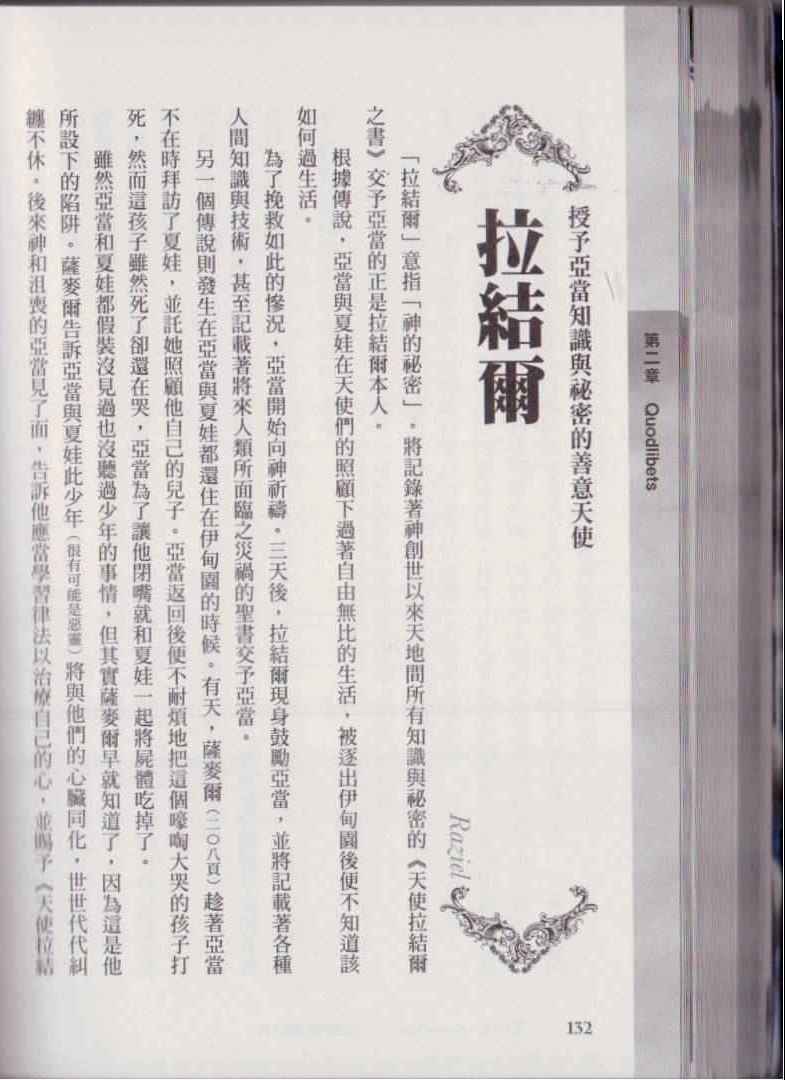 第二章 Quodlibets
授予亞當知識與祕密的善意天使
拉結爾
Raziel
「拉結爾」意指「神的祕密」。將記錄著神創世以來天地間所有知識與祕密的《天使拉結爾
之書》交予亞當的正是拉結爾本人。
根據傳說，亞當與夏娃在天使們的照顧下過著自由無比的生活，被逐出伊甸園後便不知道該
如何過生活。
為了挽救如此的慘況，亞當開始向神祈禱。三天後，拉結爾現身鼓勵亞當，並將記載著各種
人間知識與技術，甚至記載著將來人類所面臨之災禍的聖書交予亞當。
另一個傳說則發生在亞當與夏娃都還住在伊甸園的時候。有天，薩麥爾（二〇八頁）趁著亞當
不在時拜訪了夏娃，並託她照顧他自己的兒子。亞當返回後便不耐煩地把這個嚎啕大哭的孩子打
死，然而這孩子雖然死了卻還在哭，亞當為了讓他閉嘴就和夏娃一起將屍體吃掉了。
雖然亞當和夏娃都假裝沒見過也沒聽過少年的事情，但其實薩麥爾早就知道了，因為這是他
所設下的陷阱。薩麥爾告訴亞當與夏娃此少年（很有可能是惡靈）將與他們的心臟同化，世世代代糾
纏不休。後來神和沮喪的亞當見了面，告訴他應當學習律法以治療自己的心，並賜予《天使拉結
132